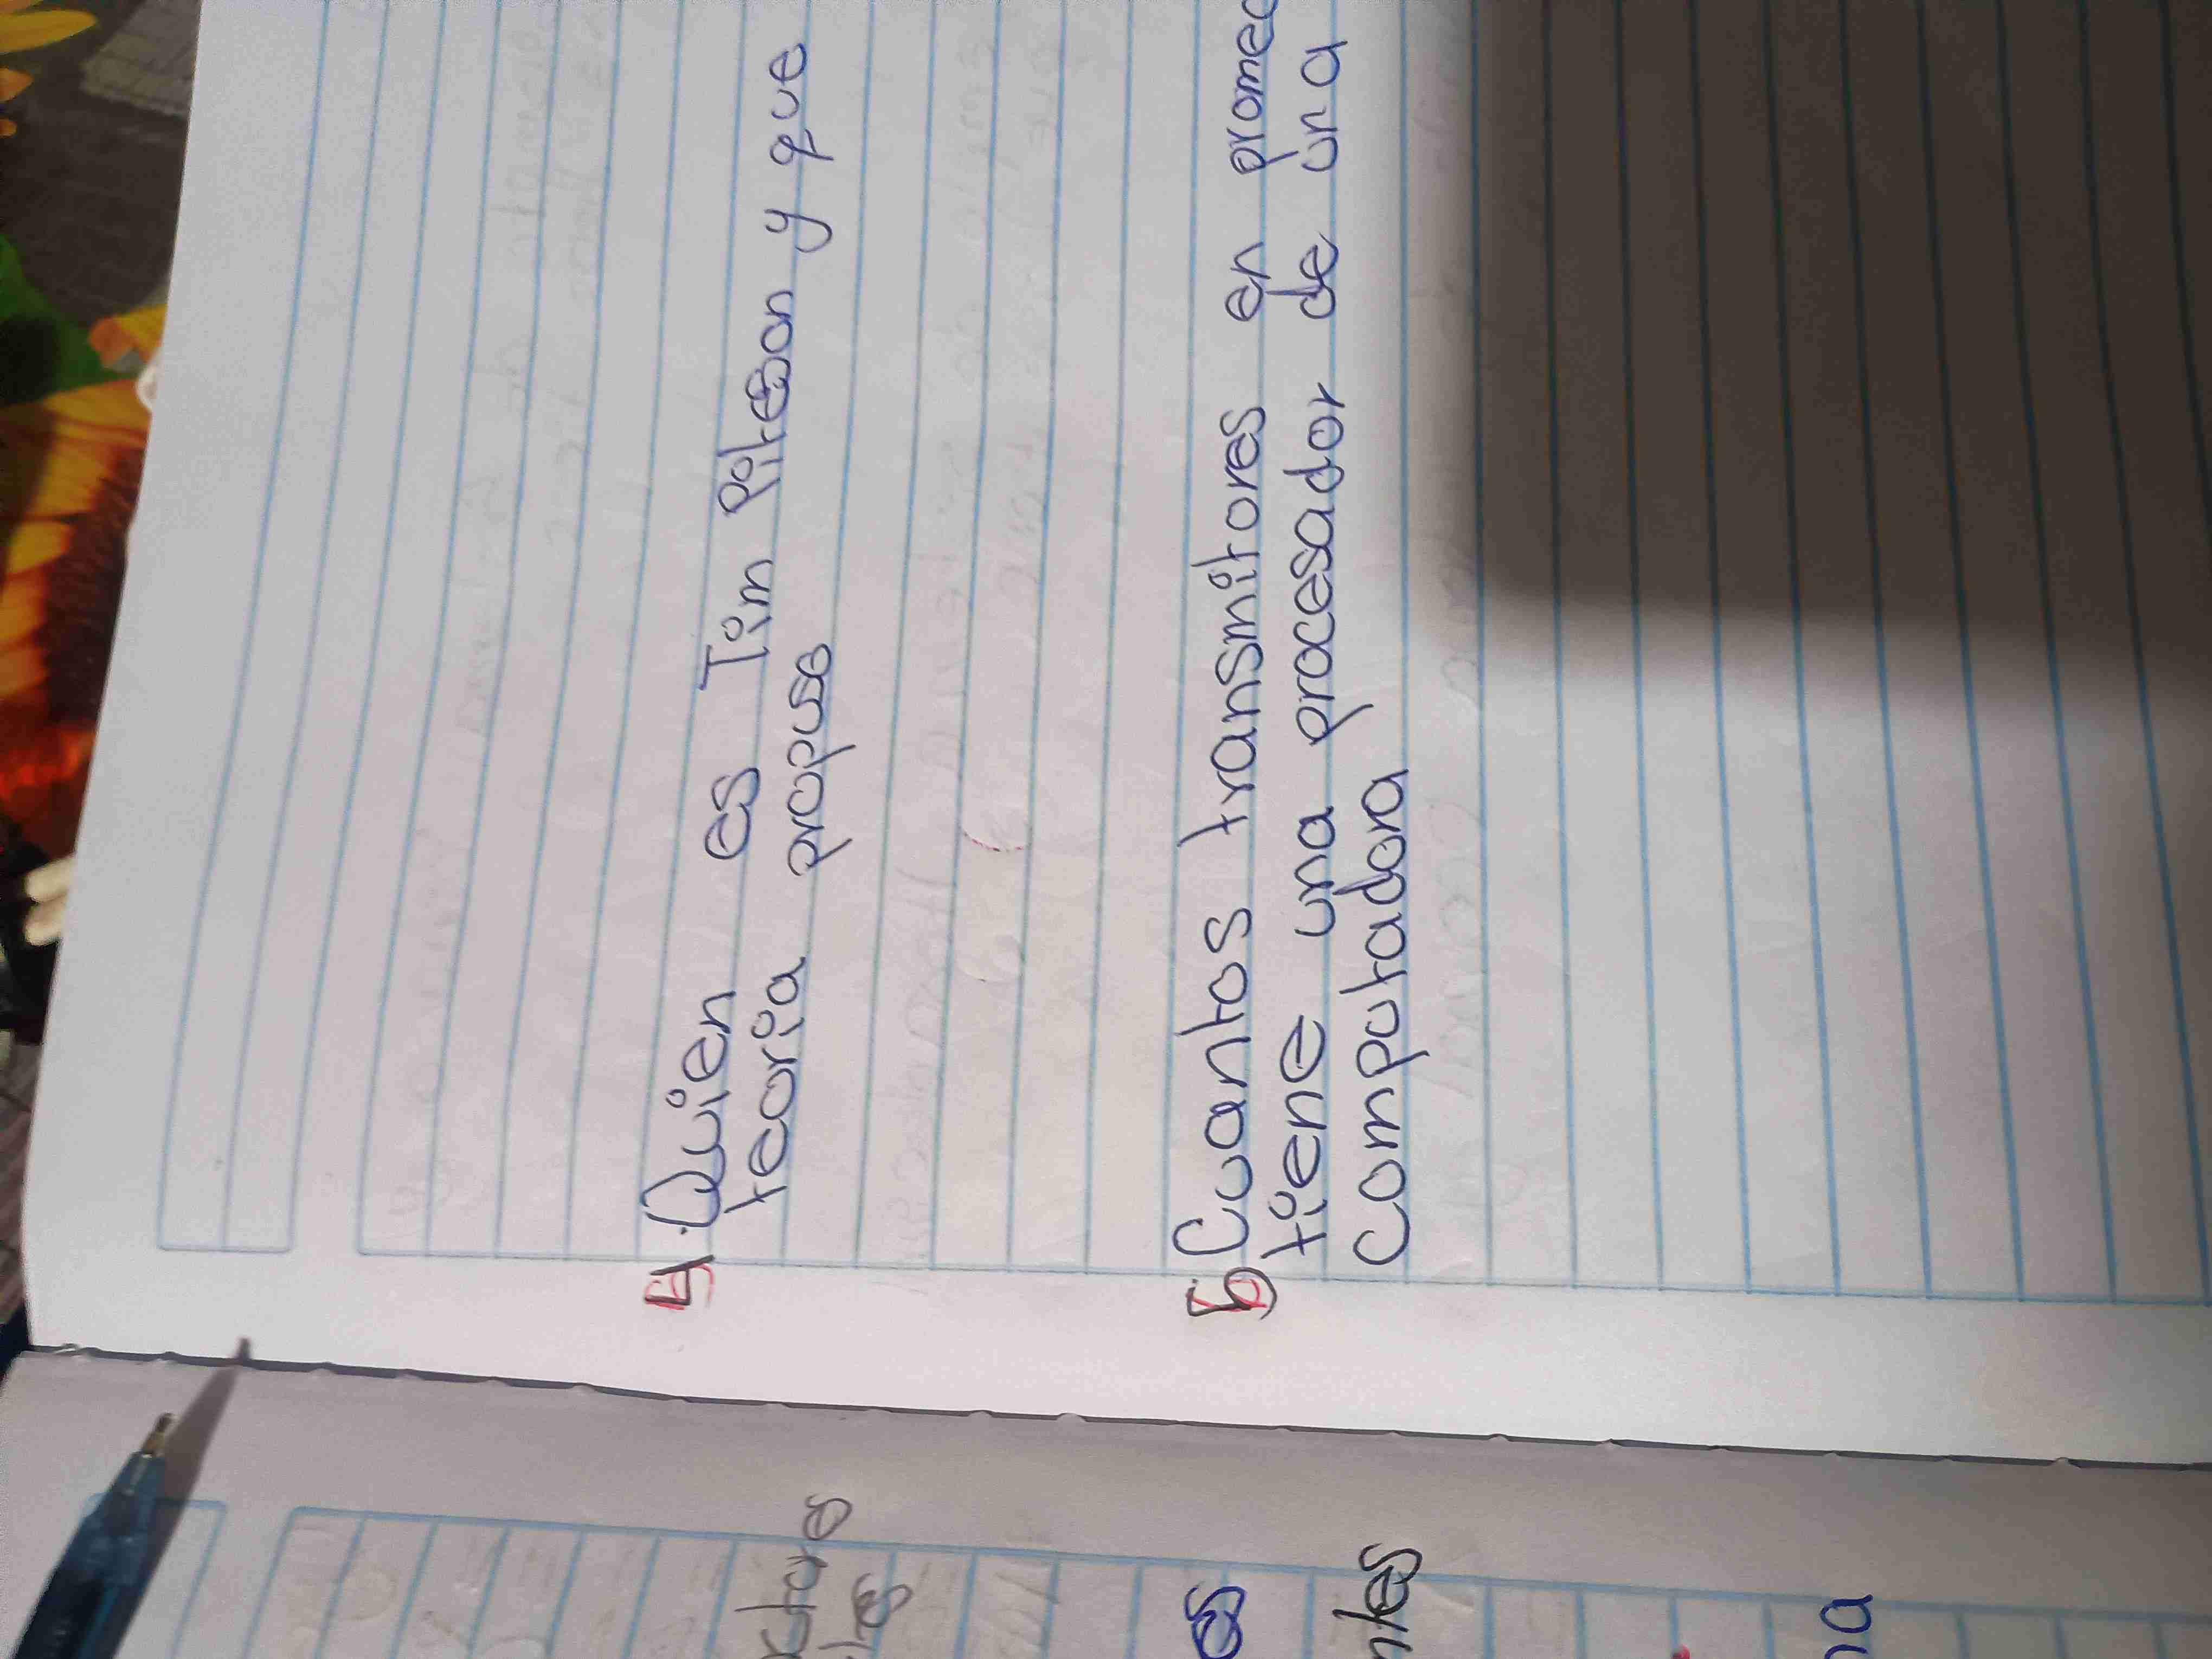 4. Quien es Tim Piterson y que
teoria propuso
5 Cuantos transmitores en promed
tiene una procesador de una
Computadora
es
ntes
na